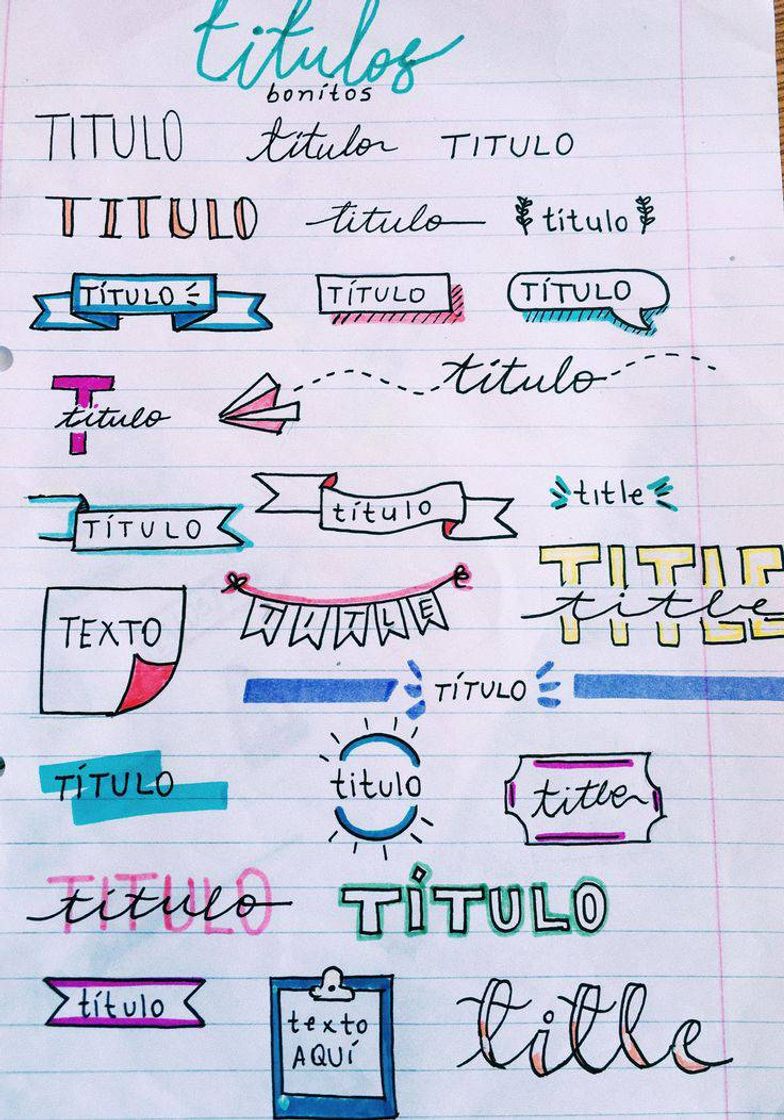 titulos
bonitos
TITULO titulo TITULO
TITULO titulo título
TÍTULO TÍTULO TÍTULO
título
T
titulo
TÍTULO título title
TITLE
title
TEXTO TITLE
TÍTULO
TÍTULO titulo title
TITULO
título TÍTULO
título texto
AQUÍ title